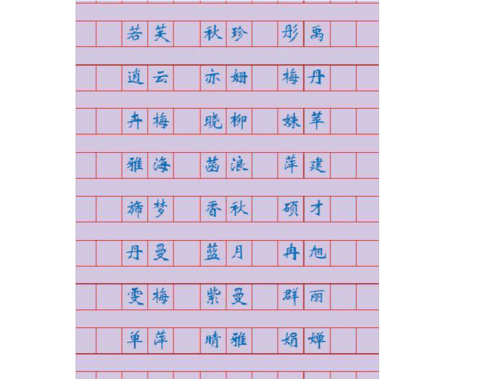 若芙 秋珍 彤禹
逍云 亦姗 梅丹
卉梅 晓柳 姝苹
雅海 菡浪 萍建
旆梦 香秋 硕才
丹曼 蓝月 冉旭
雯梅 紫曼 群丽
单萍 晴雅 娟婵